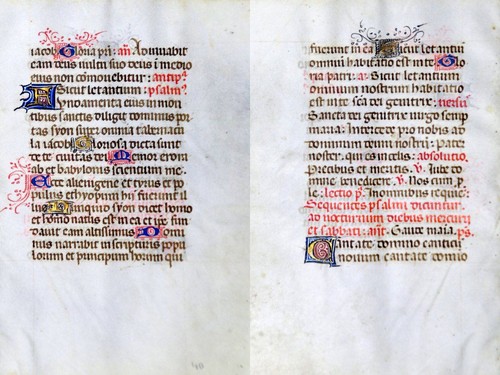 iacob Gloria pri: an Adiuvabit
eam deus vultu suo deus i medio
eius non comovebitur: antiph
Sicut letantium: psalm
Fundamenta eius in mon
tibus sanctis diligit dominus por
tas syon super omnia tabernacu
la iacob Gloriosa dicta sunt
de te civitas dei Memor ero raa
ab et babylonis scientium me.
Ecce alienigene et tyrus et po
pulus ethyopum hii fuerunt il
luc Numquid syon dicet homo
et homo natus est in ea et ipse fun
davit eam altissimus Domi
nus narrabit in scripturis popu
lorum et principum horum qui
fuerunt in ea Sicut letantiu
omniu habitatio est in te Glo
ria patri: an Sicut letantium
omnium nostrum habitatio
est in te sca dei genitrix: versi
Sancta dei genitrix virgo semp
maria: Intercede pro nobis ad
dominum deum nostru: Pater
noster, qui es in celis: absolutio.
Precibus et meritis. v. Iube do
mne benedicere. v. Nos cum p
le: lectio p. In omnibus requie
Sequentes psalmi dicuntur
ad nocturnum diebus mercurii
et sabbati: ant. Gaude maria. ps.
Cantate domino canticu
novum cantate domino
40